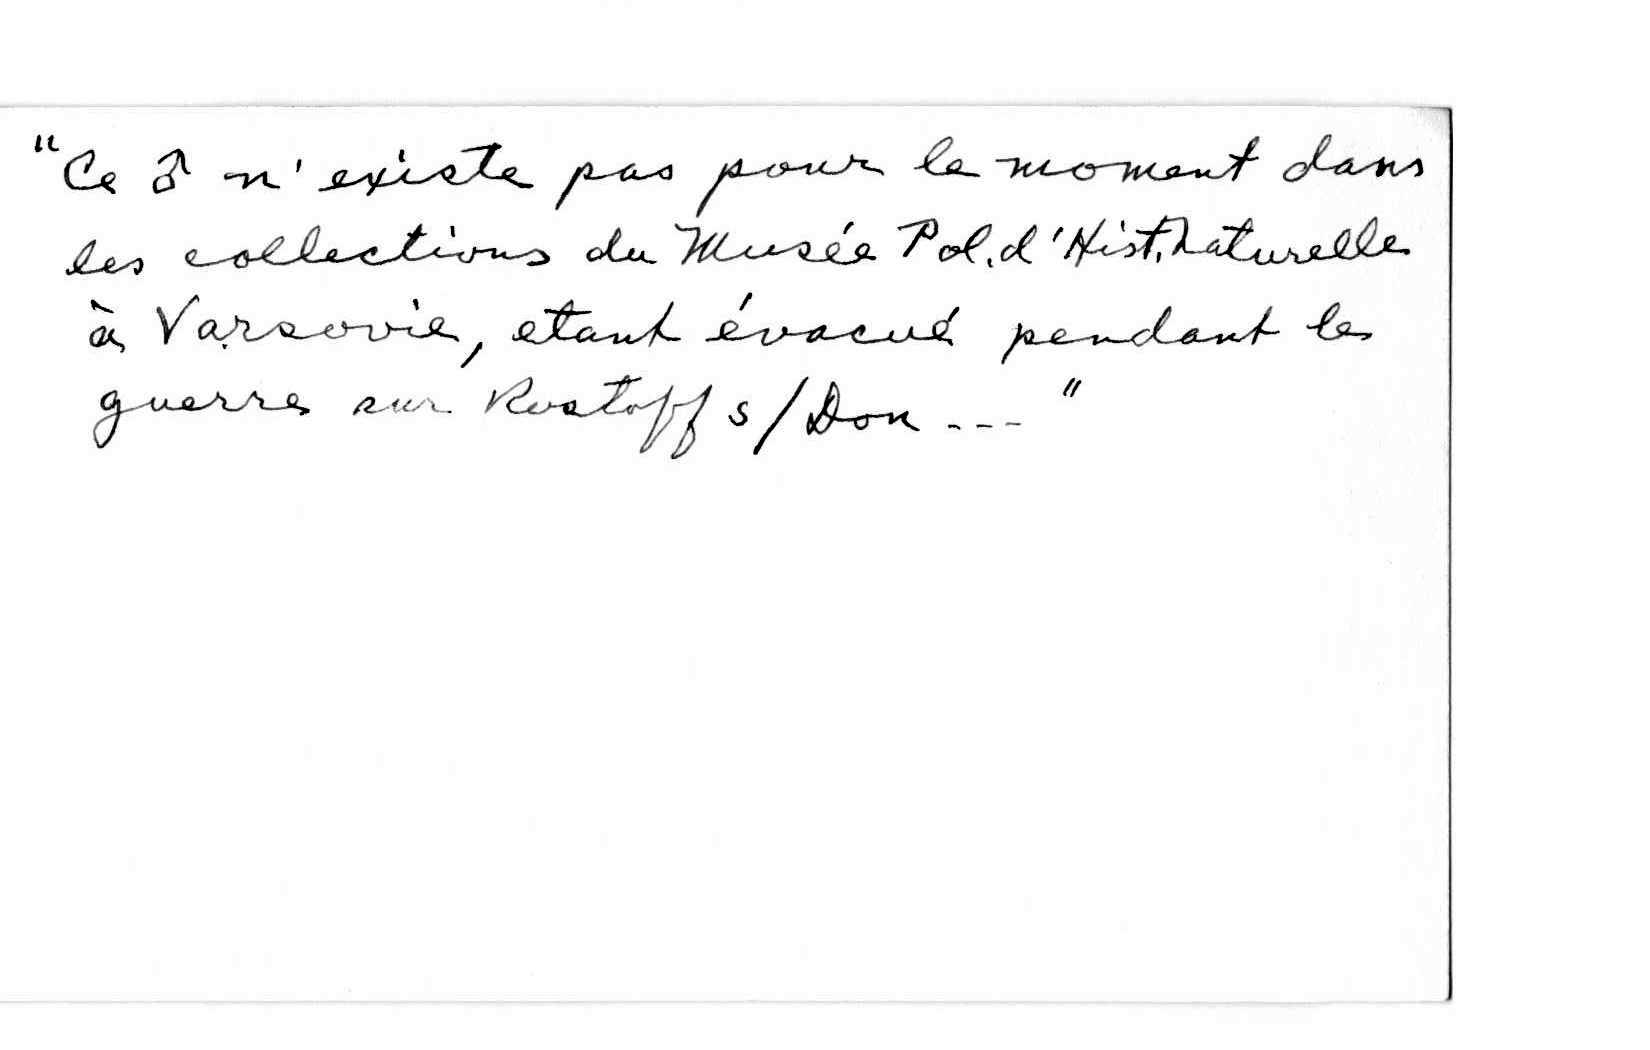 "Ce ♂ n'existe pas pour le moment dans
les collections du Musée Pol. d'Hist. naturelle
à Varsovie, etant évacué pendant le
guerre sur Rostoff s/Don ---"